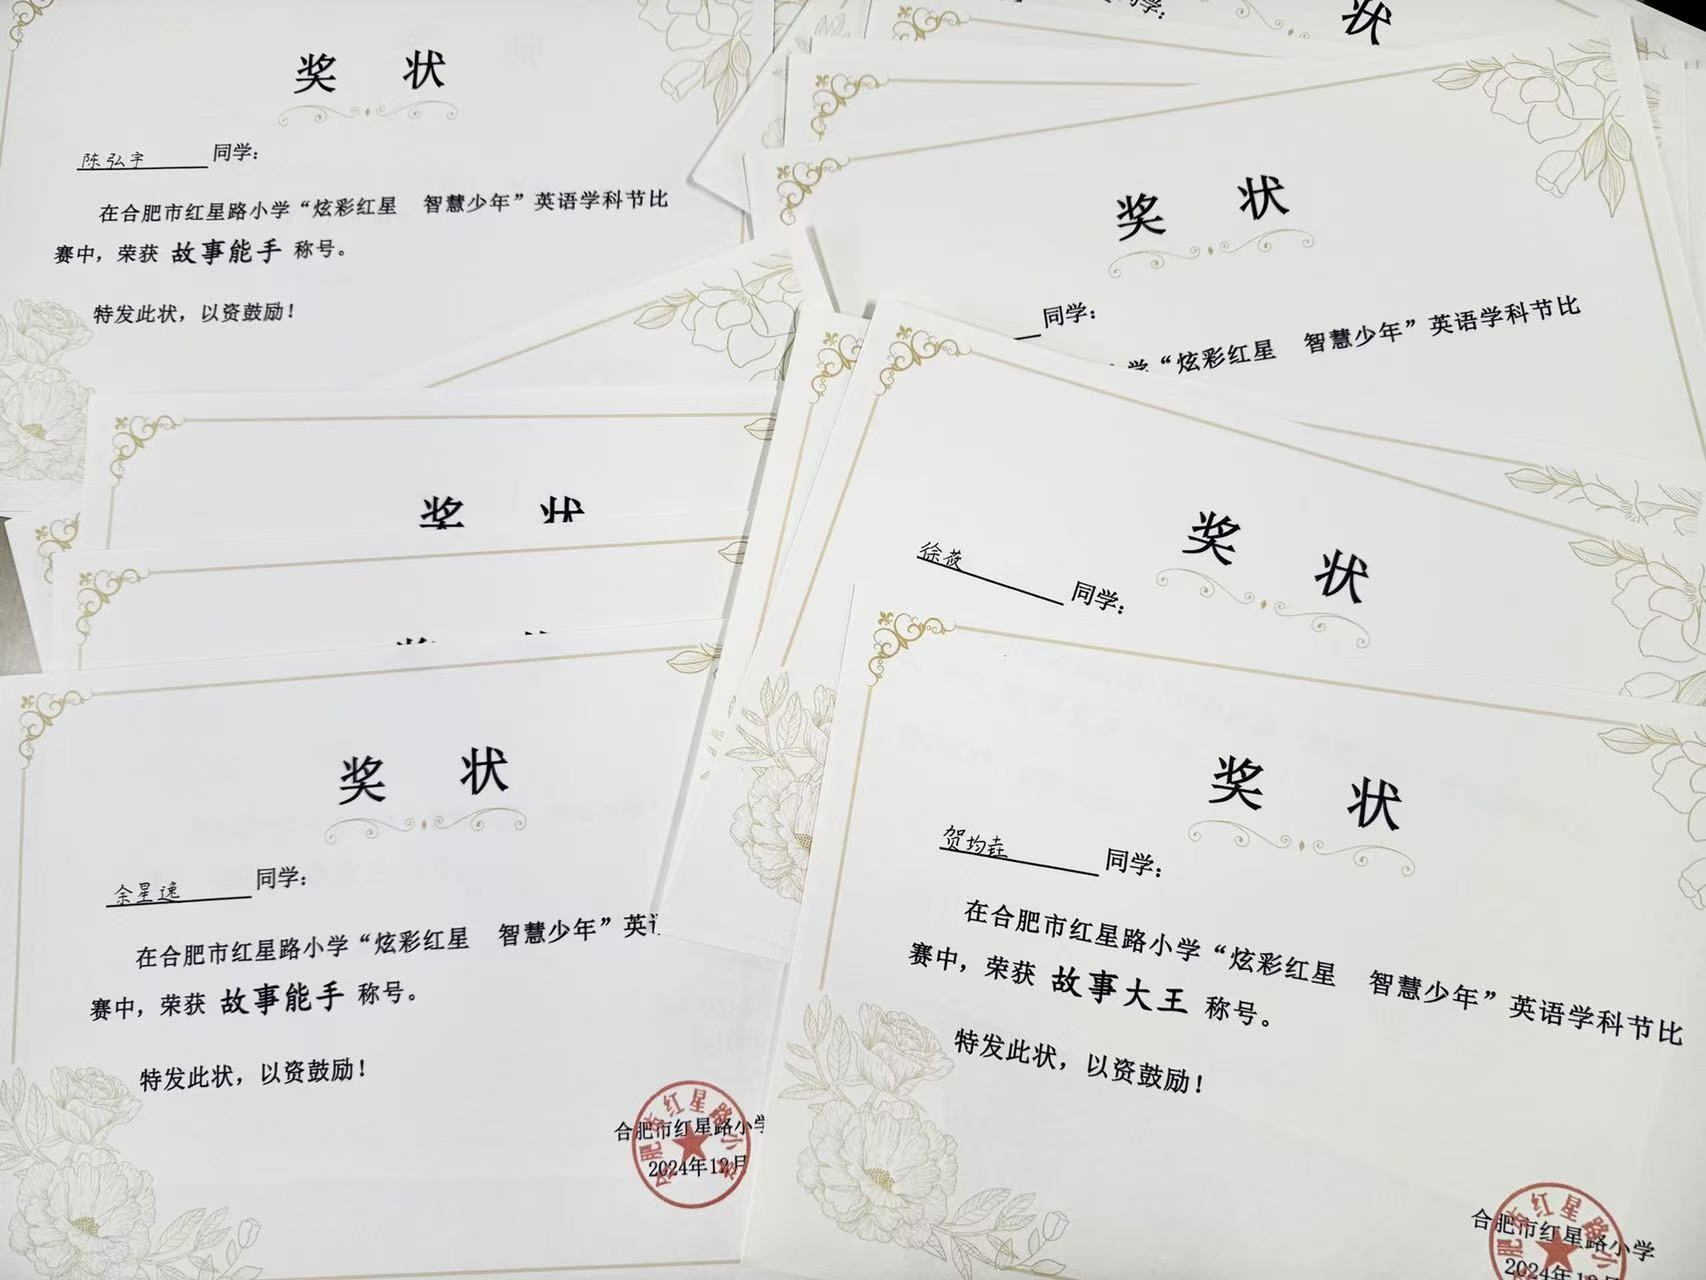 奖 状
陈弘宇 同学：
在合肥市红星路小学“炫彩红星 智慧少年”英语学科节比
赛中，荣获 故事能手 称号。
特发此状，以资鼓励！
状
奖 状
同学：
学“炫彩红星 智慧少年”英语学科节比
奖 状
奖 状
徐薇 同学：
奖 状
余星逸 同学：
在合肥市红星路小学“炫彩红星 智慧少年”英语
赛中，荣获 故事能手 称号。
特发此状，以资鼓励！
合肥市红星路小学
2024年12月
合肥市红星路小学
奖 状
贺均垚 同学：
在合肥市红星路小学“炫彩红星 智慧少年”英语学科节比
赛中，荣获 故事大王 称号。
特发此状，以资鼓励！
合肥市红星路小学
2024年12月